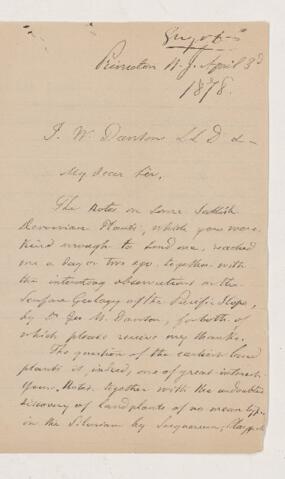 Guyot
Princeton N. J. April 3d
1878.
J. W. Dawson LL D &
My dear Sir,
The Notes on some Scottish
Devonian Plants, which you were
kind enough to send me, reached
me a day or two ago together with
the interesting observations on the
Surface Geology of the Pacific Slope,
by Dr Geo M. Dawson, for both of
which please receive my thanks.
The question of the earliest land
plants is, indeed, one of great interest.
Your Notes, together with the undoubted
discovery of landplants of no mean type
in the Silurian by Lesquereux, Claypole